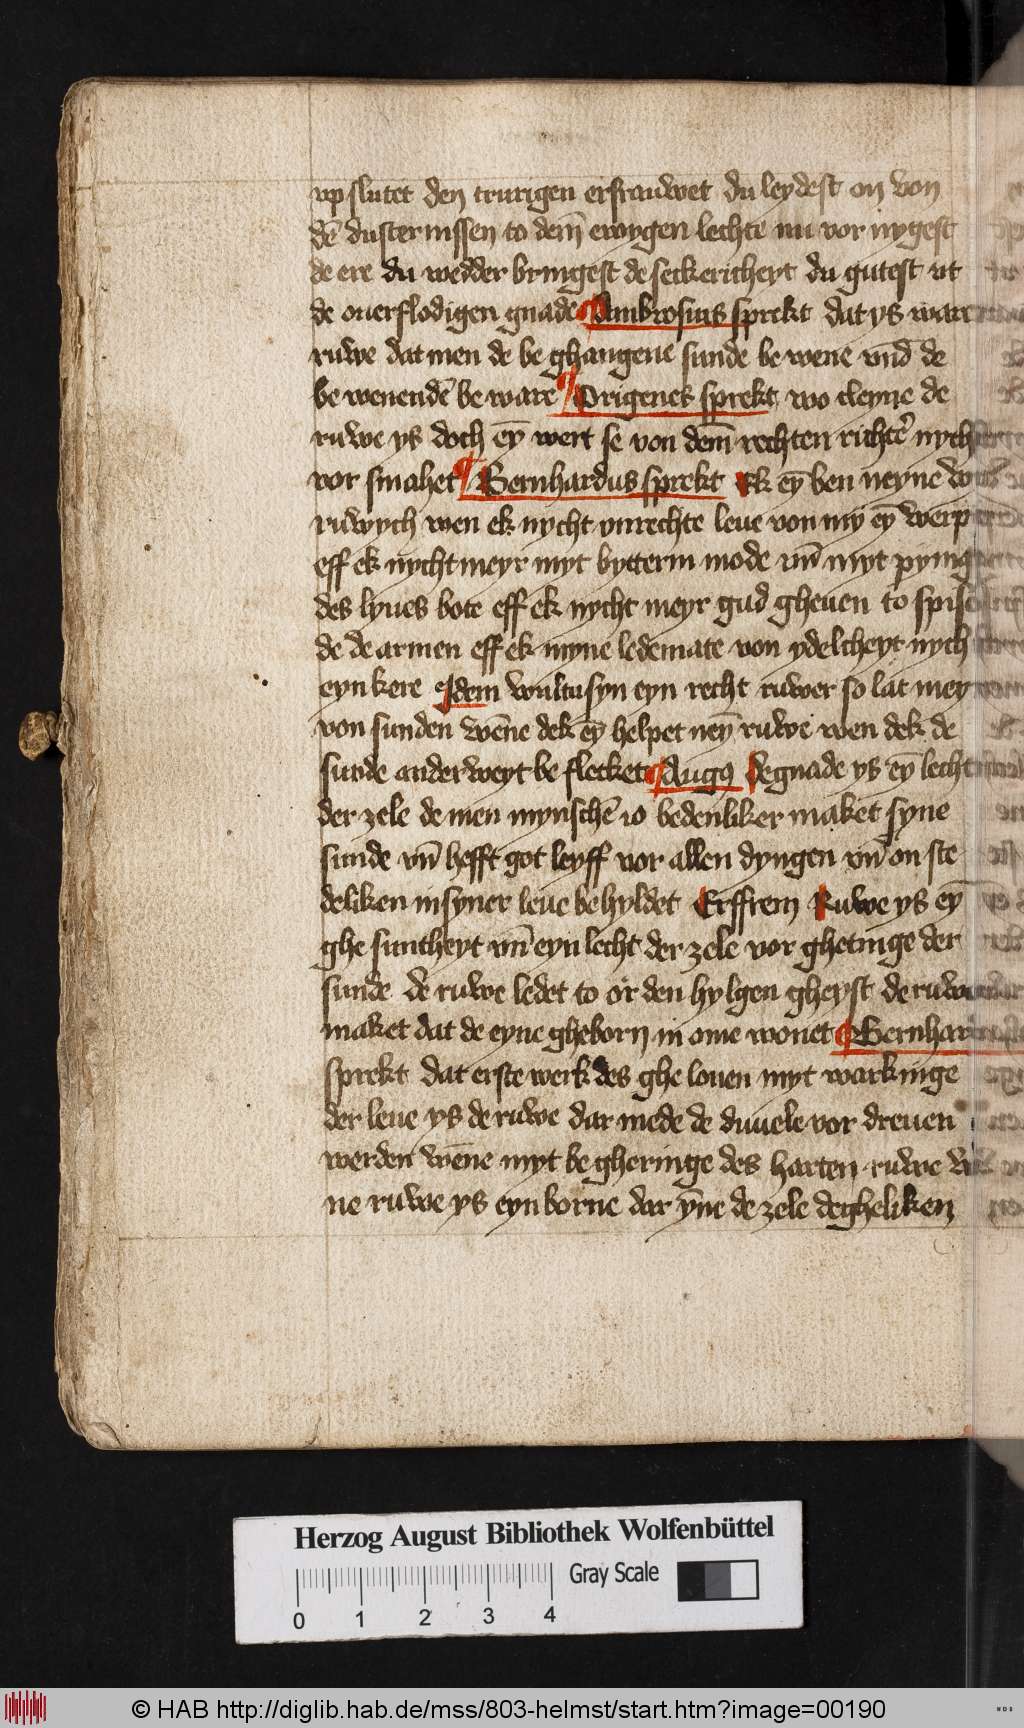 vp slutet den trurigen erfrauwet du leydest on von
dē dusternissen to dem̄ ewygen lechte nu vor nygest
de ere du wedder bringest de seckericheyt du gutest ut
de ouerflodigen gnade ¶ Ambrosius sprekt dat ys ware
ruwe dat men de be ghangene sunde be wene vnd̄ de
be wenendē be ware ¶ Origenes sprekt wo cleyne de
ruwe ys doch eȳ wert se von dem̄ rechten richter nycht
vor smahet ¶ Bernhardus sprekt Ek eȳ ben neyne
ruwych wen ek nycht vnrechte leue von my eȳ werp
eff ek nycht meyr myt bytterm mode vn̄ myt
des lyues bote eff ek nycht meyr gud gheuen to
de de armen eff ek myne ledemate von ydelcheyt nych
eyn kere Idem wultu syn eyn recht ruwer so lat
von sunden wēne dek eȳ helpet neȳ ruwe wen dek de
sunde anderweyt be flecket ¶ Augꝰ De gnade ys eȳ lecht
der zele de men mynschē io bedenliker maket syne
sunde vn̄ hefft got leyff vor allen dyngen vn̄ on ste
deliken in syner leue be hyldet Erffrem Ruwe ys eȳ
ghe suntheyt vn̄ eyn lecht der zele vor ghetinge der
sunde de ruwe ledet to ör den hylgen gheyst de
maket dat de eyne gheborn in ome wonet ¶
sprekt dat erste werk des ghe louen myt warkinge
der leue ys de ruwe dar mede de duuele vor dreuen
werden wēne myt be gheringe des harten ruwe
ne ruwe ys eyn borne dar ȳne de zele degheliken
Herzog August Bibliothek Wolfenbüttel
Gray Scale
0 1 2 3 4
© HAB http://diglib.hab.de/mss/803-helmst/start.htm?image=00190